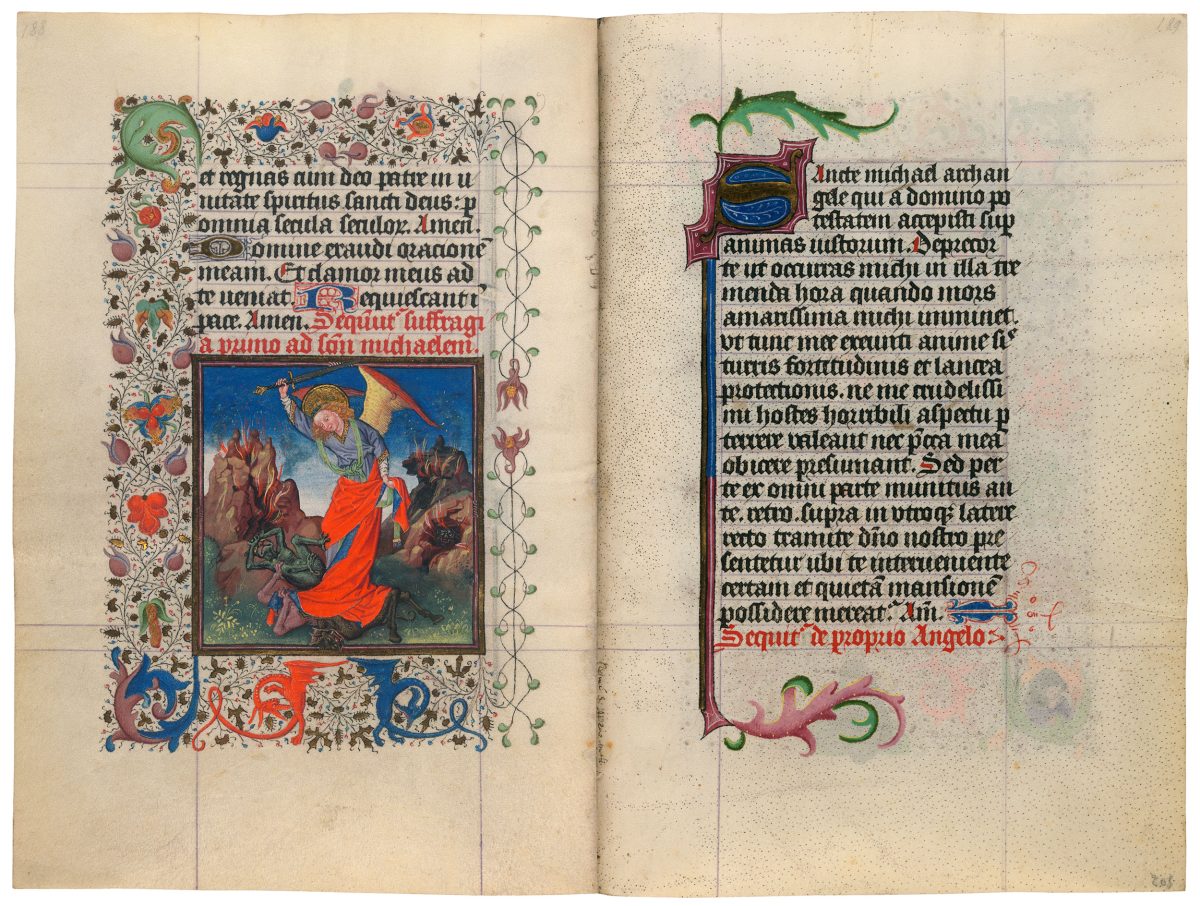 188
et regnas cum deo patre in u
nitate spiritus sancti deus: p
omnia secula seculoꝝ. Amen.
Domine exaudi oracionē
meam. Et clamor meus ad
te veniat. Requiescant ī
pace. Amen. Sequūt᷑ suffragi
a primo ad scm̄ michaelem.
189
Sancte michael archan
gele qui a domino po
testatem accepisti sup
animas iustorum. Deprecor
te ut occuras michi in illa tre
menda hora quando mors
amarissima michi imminet.
vt tunc mee exeunti anime si
turris fortitudinis et lancea
protectionis. ne me crudelissi
mi hostes horribili aspectu p
terrere valeant nec pc̄ca mea
obicere presumant. Sed per
te ex omni parte munitus an
te. retro. supra in vtroqꝫ latere
recto tramite dn̄o nostro pre
sentetur ubi te interveniente
certam et quietā mansionē
possidere mereat᷑. Am̄.
Sequit᷑ de proprio Angelo